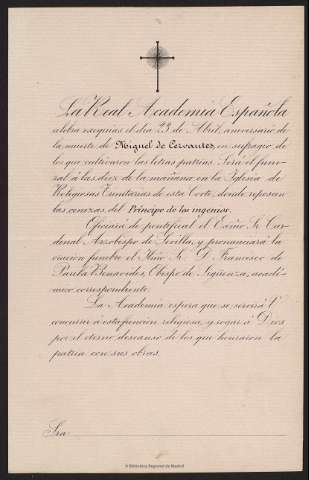 La Real Academia Española
celebra exequias el dia 23 de Abril, aniversario de
la muerte de Miguel de Cervantes, en sufragio de
los que cultivaron las letras patrias. Será el fune-
ral á las diez de la mañana en la Iglesia de
Religiosas Trinitarias de esta Corte, donde reposan
las cenizas del Príncipe de los ingenios.
Oficiará de pontifical el Exmo Sr. Car-
denal Arzobispo de Sevilla, y pronunciará la
oracion fúnebre el Ilmo Sr. D. Francisco de
Paula Benavides, Obispo de Sigüenza, acadé-
mico correspondiente.
La Academia espera que se servirá V.
concurrir á esta funcion religiosa, y rogar á Dios
por el eterno descanso de los que honraron la
patria con sus obras.
Sra.
Biblioteca Regional de Madrid